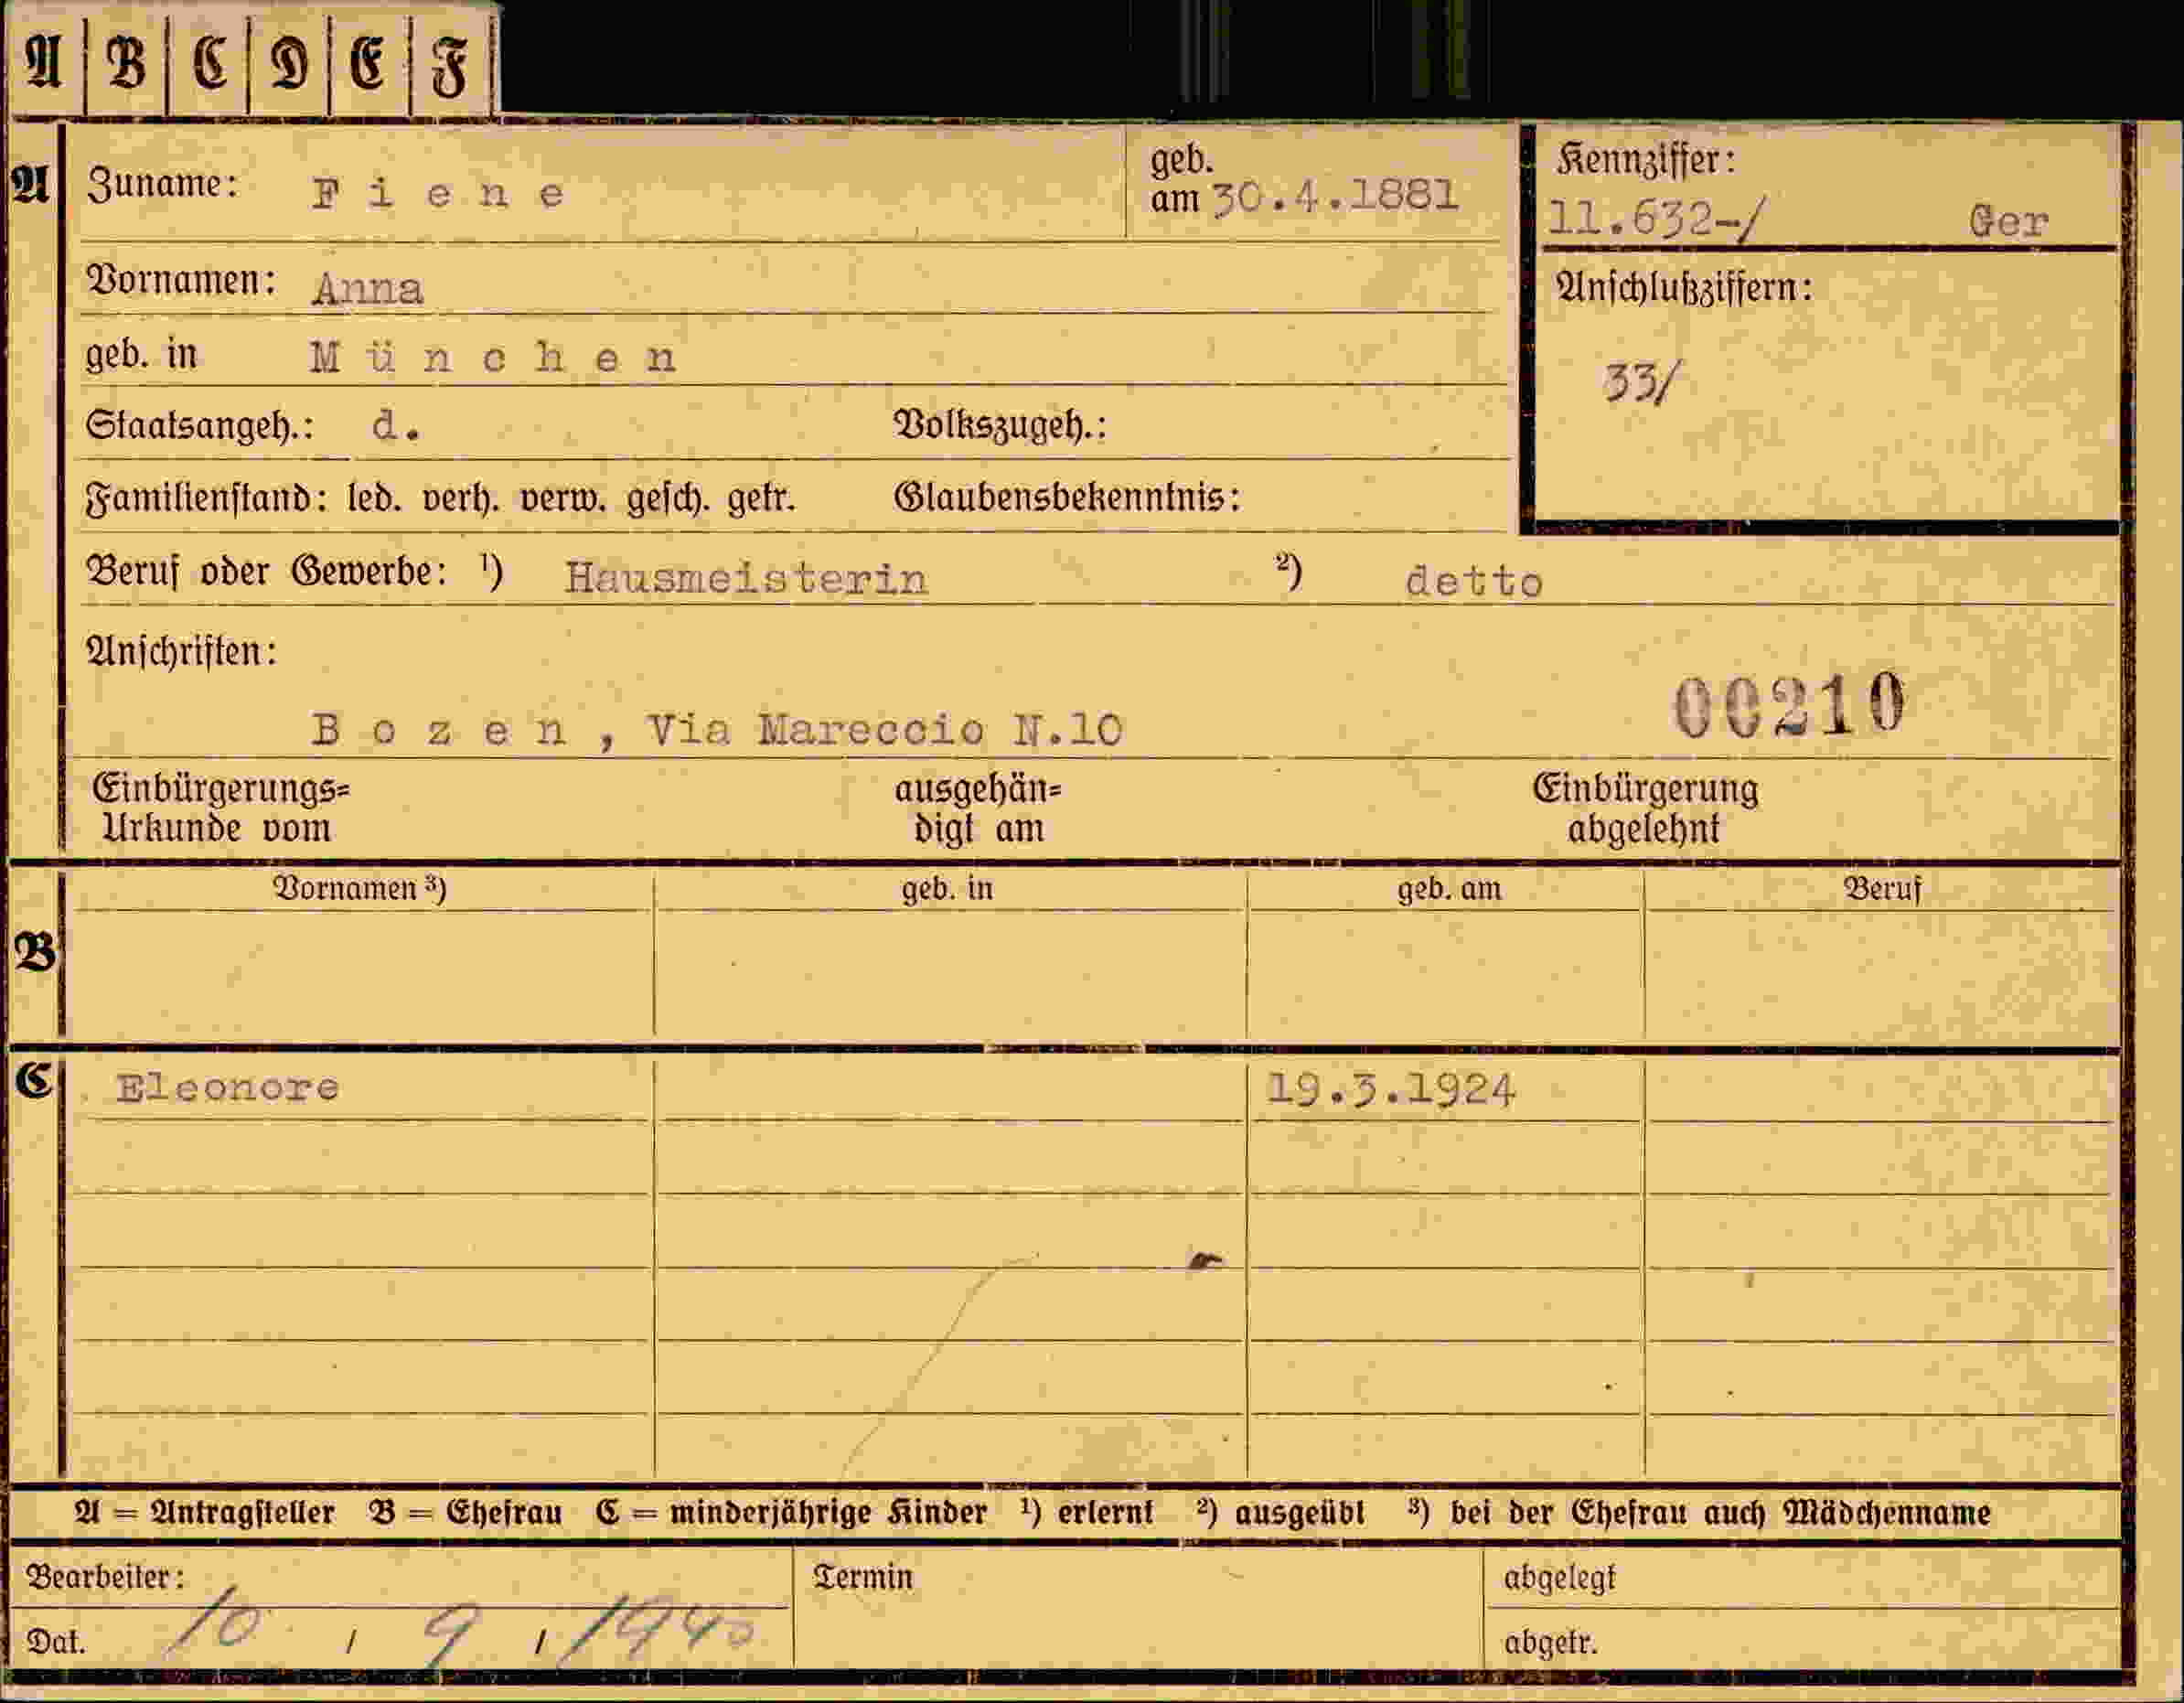 A B C D E F
A Zuname: Fiene geb. am 30.4.1881
Kennziffer:
11.632-/ Ger
Vornamen: Anna
Anschlußziffern:
33/
geb. in München
Staatsangeh.: d. Volkszugeh.:
Familienstand: led. verh. verw. gesch. getr. Glaubensbekenntnis:
Beruf oder Gewerbe: ¹) Hausmeisterin ²) detto
Anschriften:
00210
Bozen, Via Mareccio N.10
Einbürgerungs= ausgehän= Einbürgerung
Urkunde vom digt am abgelehnt
Vornamen ³) geb. in geb. am Beruf
B
C Eleonore 19.3.1924
A = Antragsteller B = Ehefrau C = minderjährige Kinder ¹) erlernt ²) ausgeübt ³) bei der Ehefrau auch Mädchenname
Bearbeiter: Termin abgelegt
Dat. 10 / 9 / 1940 abgetr.